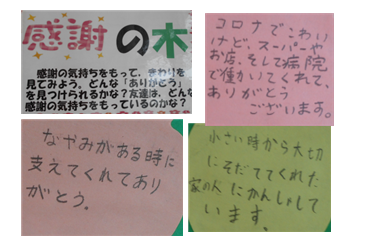 感謝の木
感謝の気持ちをもって、まわりを
見てみよう。どんな「ありがとう」
を見つけられるかな？友達は、どんな
感謝の気持ちをもっているのかな？
コロナでこわい
けど、スーパーや
お店、そして病院
で働いてくれて、
ありがとう
ございます。
なやみがある時に
支えてくれてあり
がとう。
小さい時から大切
にそだててくれた
家の人にかんしゃして
います。